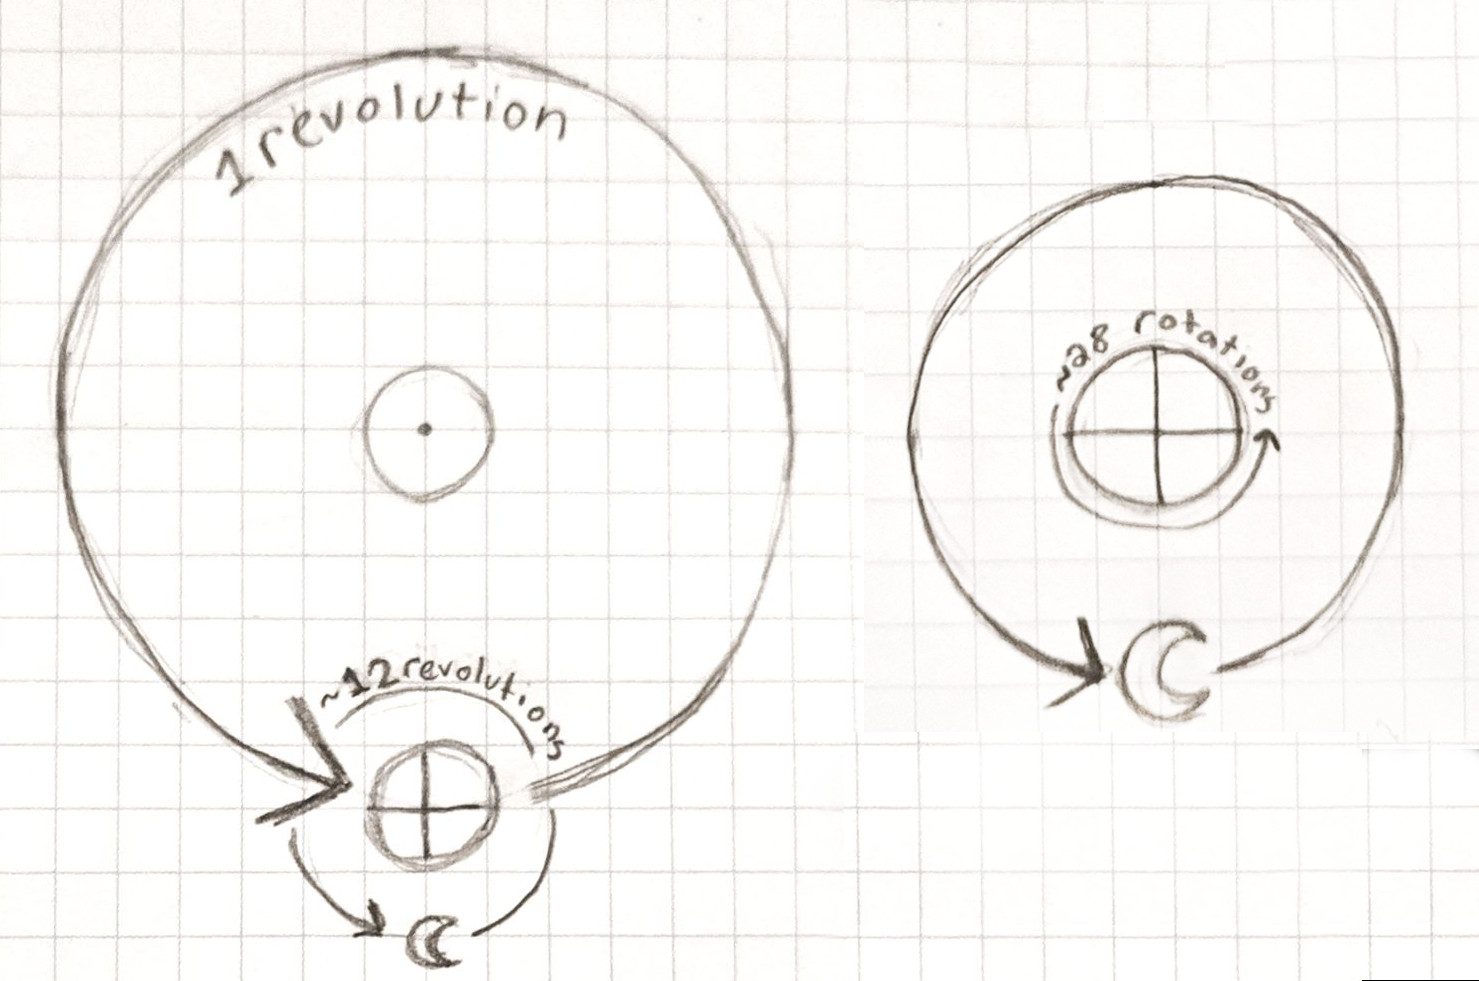 1 revolution
~12 revolutions
~28 rotations